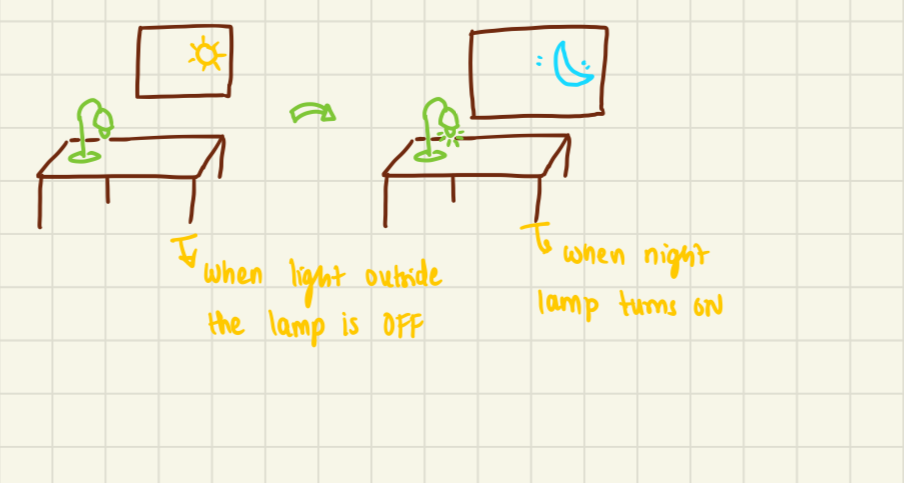 when light outside
the lamp is OFF
when night
lamp turns ON